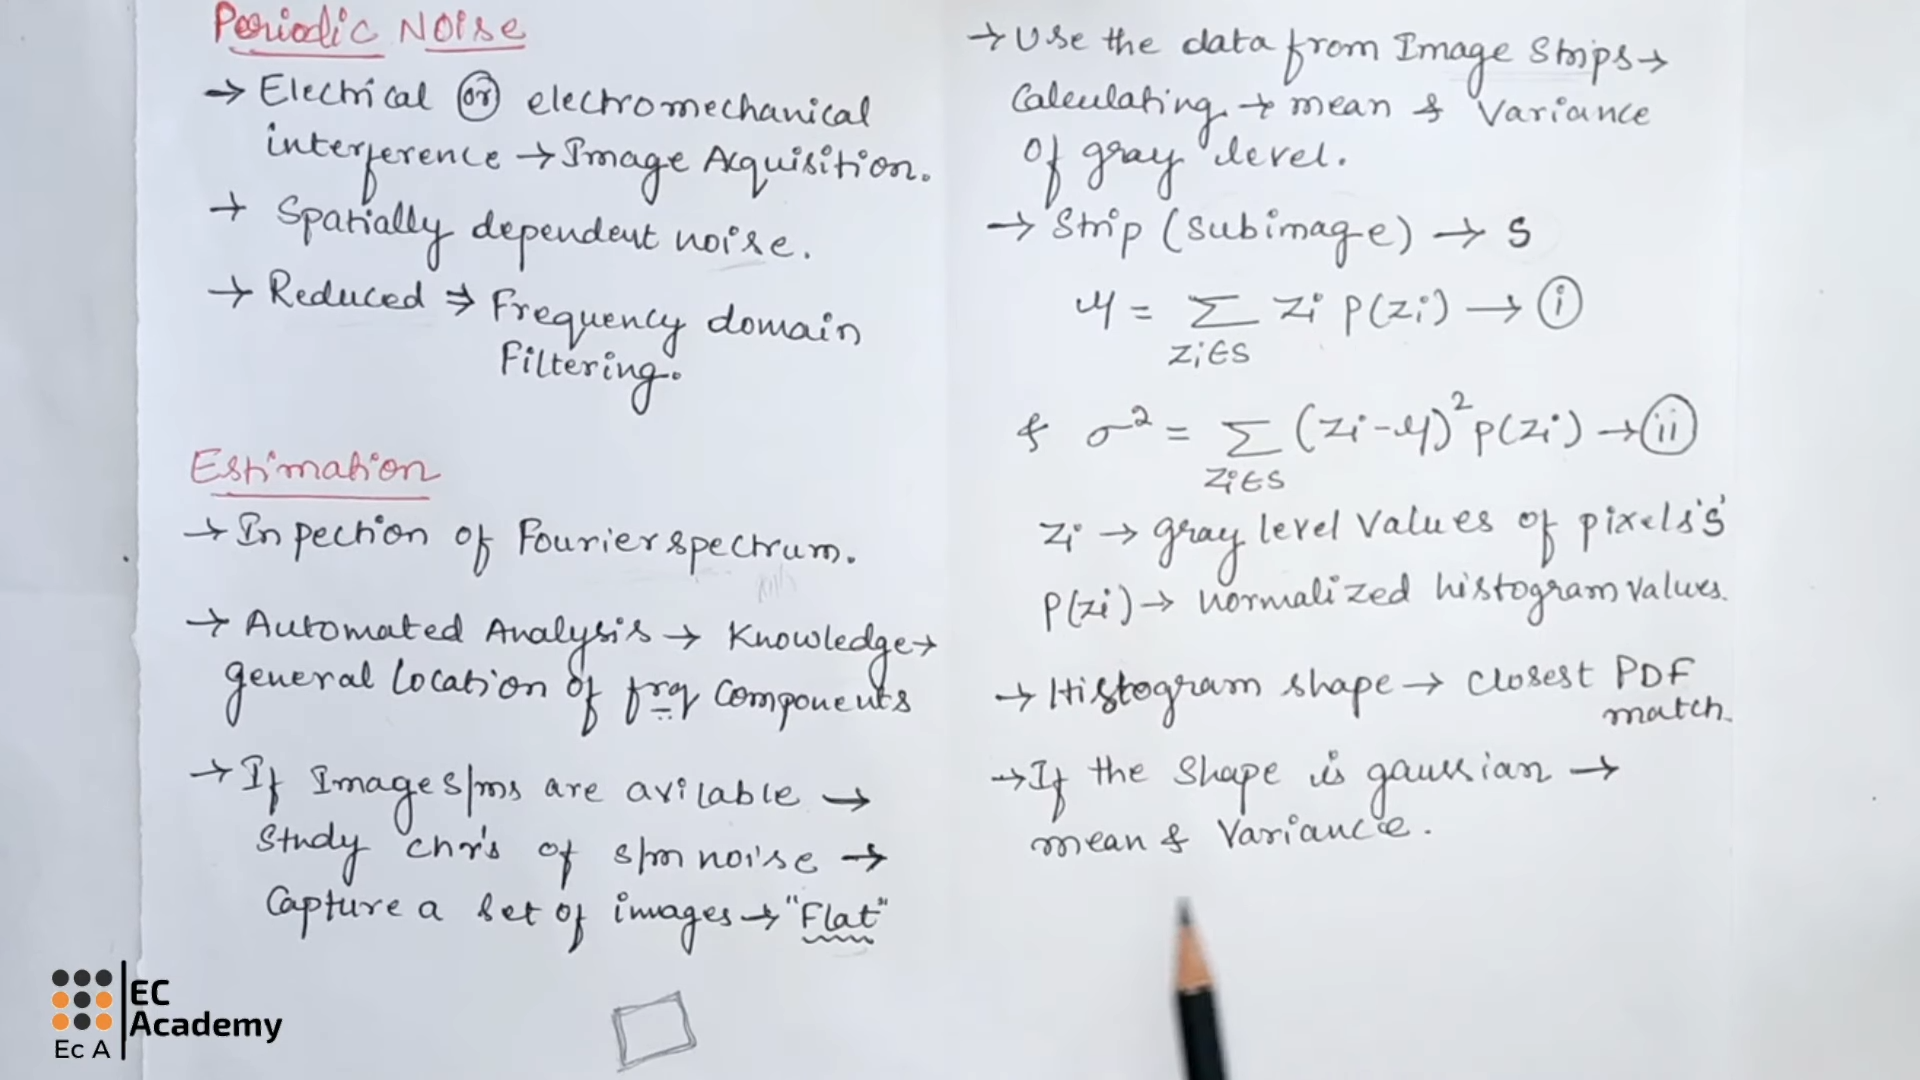 Periodic Noise
→ Electrical (or) electromechanical
interference → Image Acquisition.
→ Spatially dependent noise.
→ Reduced ⇒ Frequency domain
Filtering.
Estimation
→ Inpection of Fourier spectrum.
→ Automated Analysis → Knowledge →
general location of frq components
→ If Image s/ms are avilable →
Study chr's of s/m noise →
Capture a set of images → "Flat"
→ Use the data from Image Strips →
Calculating → mean & Variance
of gray level.
→ Strip (subimage) → S
μ = Σ zi p(zi) → (i)
zi∈S
& σ² = Σ (zi-μ)² p(zi) → (ii)
zi∈S
zi → gray level values of pixels 'S'
p(zi) → normalized histogram values.
→ Histogram shape → closest PDF
match.
→ If the shape is gaussian →
mean & Variance.
EC
Academy
Ec A